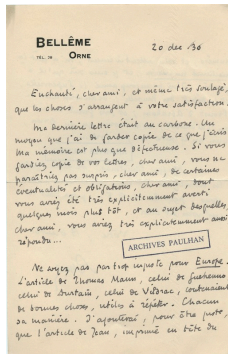 BELLÊME
ORNE
TÉL. 28
20 dec 30
Enchanté, cher ami, et même très soulagé,
que les choses s'arrangent à votre satisfaction.
Ma dernière lettre était au carbone. Un
moyen que j'ai de garder copie de ce que j'écris
Ma mémoire est plus que défectueuse. Si vous
gardiez copie de vos lettres, cher ami, vous ne
paraîtriez pas surpris, cher ami, de certaines
éventualités et obligations, cher ami, dont
vous aviez été très explicitement averti
quelques mois plus tôt, et au sujet desquelles,
cher ami, vous aviez très explicitement
répondu...
ARCHIVES PAULHAN
Ne soyez pas par trop injuste pour Europe.
L'article de Thomas Mann, celui de Guéhenno
celui de Durtain, celui de Vildrac, contenaient
de bonnes choses, utiles à répéter. Chacun
sa manière. J'ajouterai, pour être juste,
que l'article de Jean, imprimé en tête du